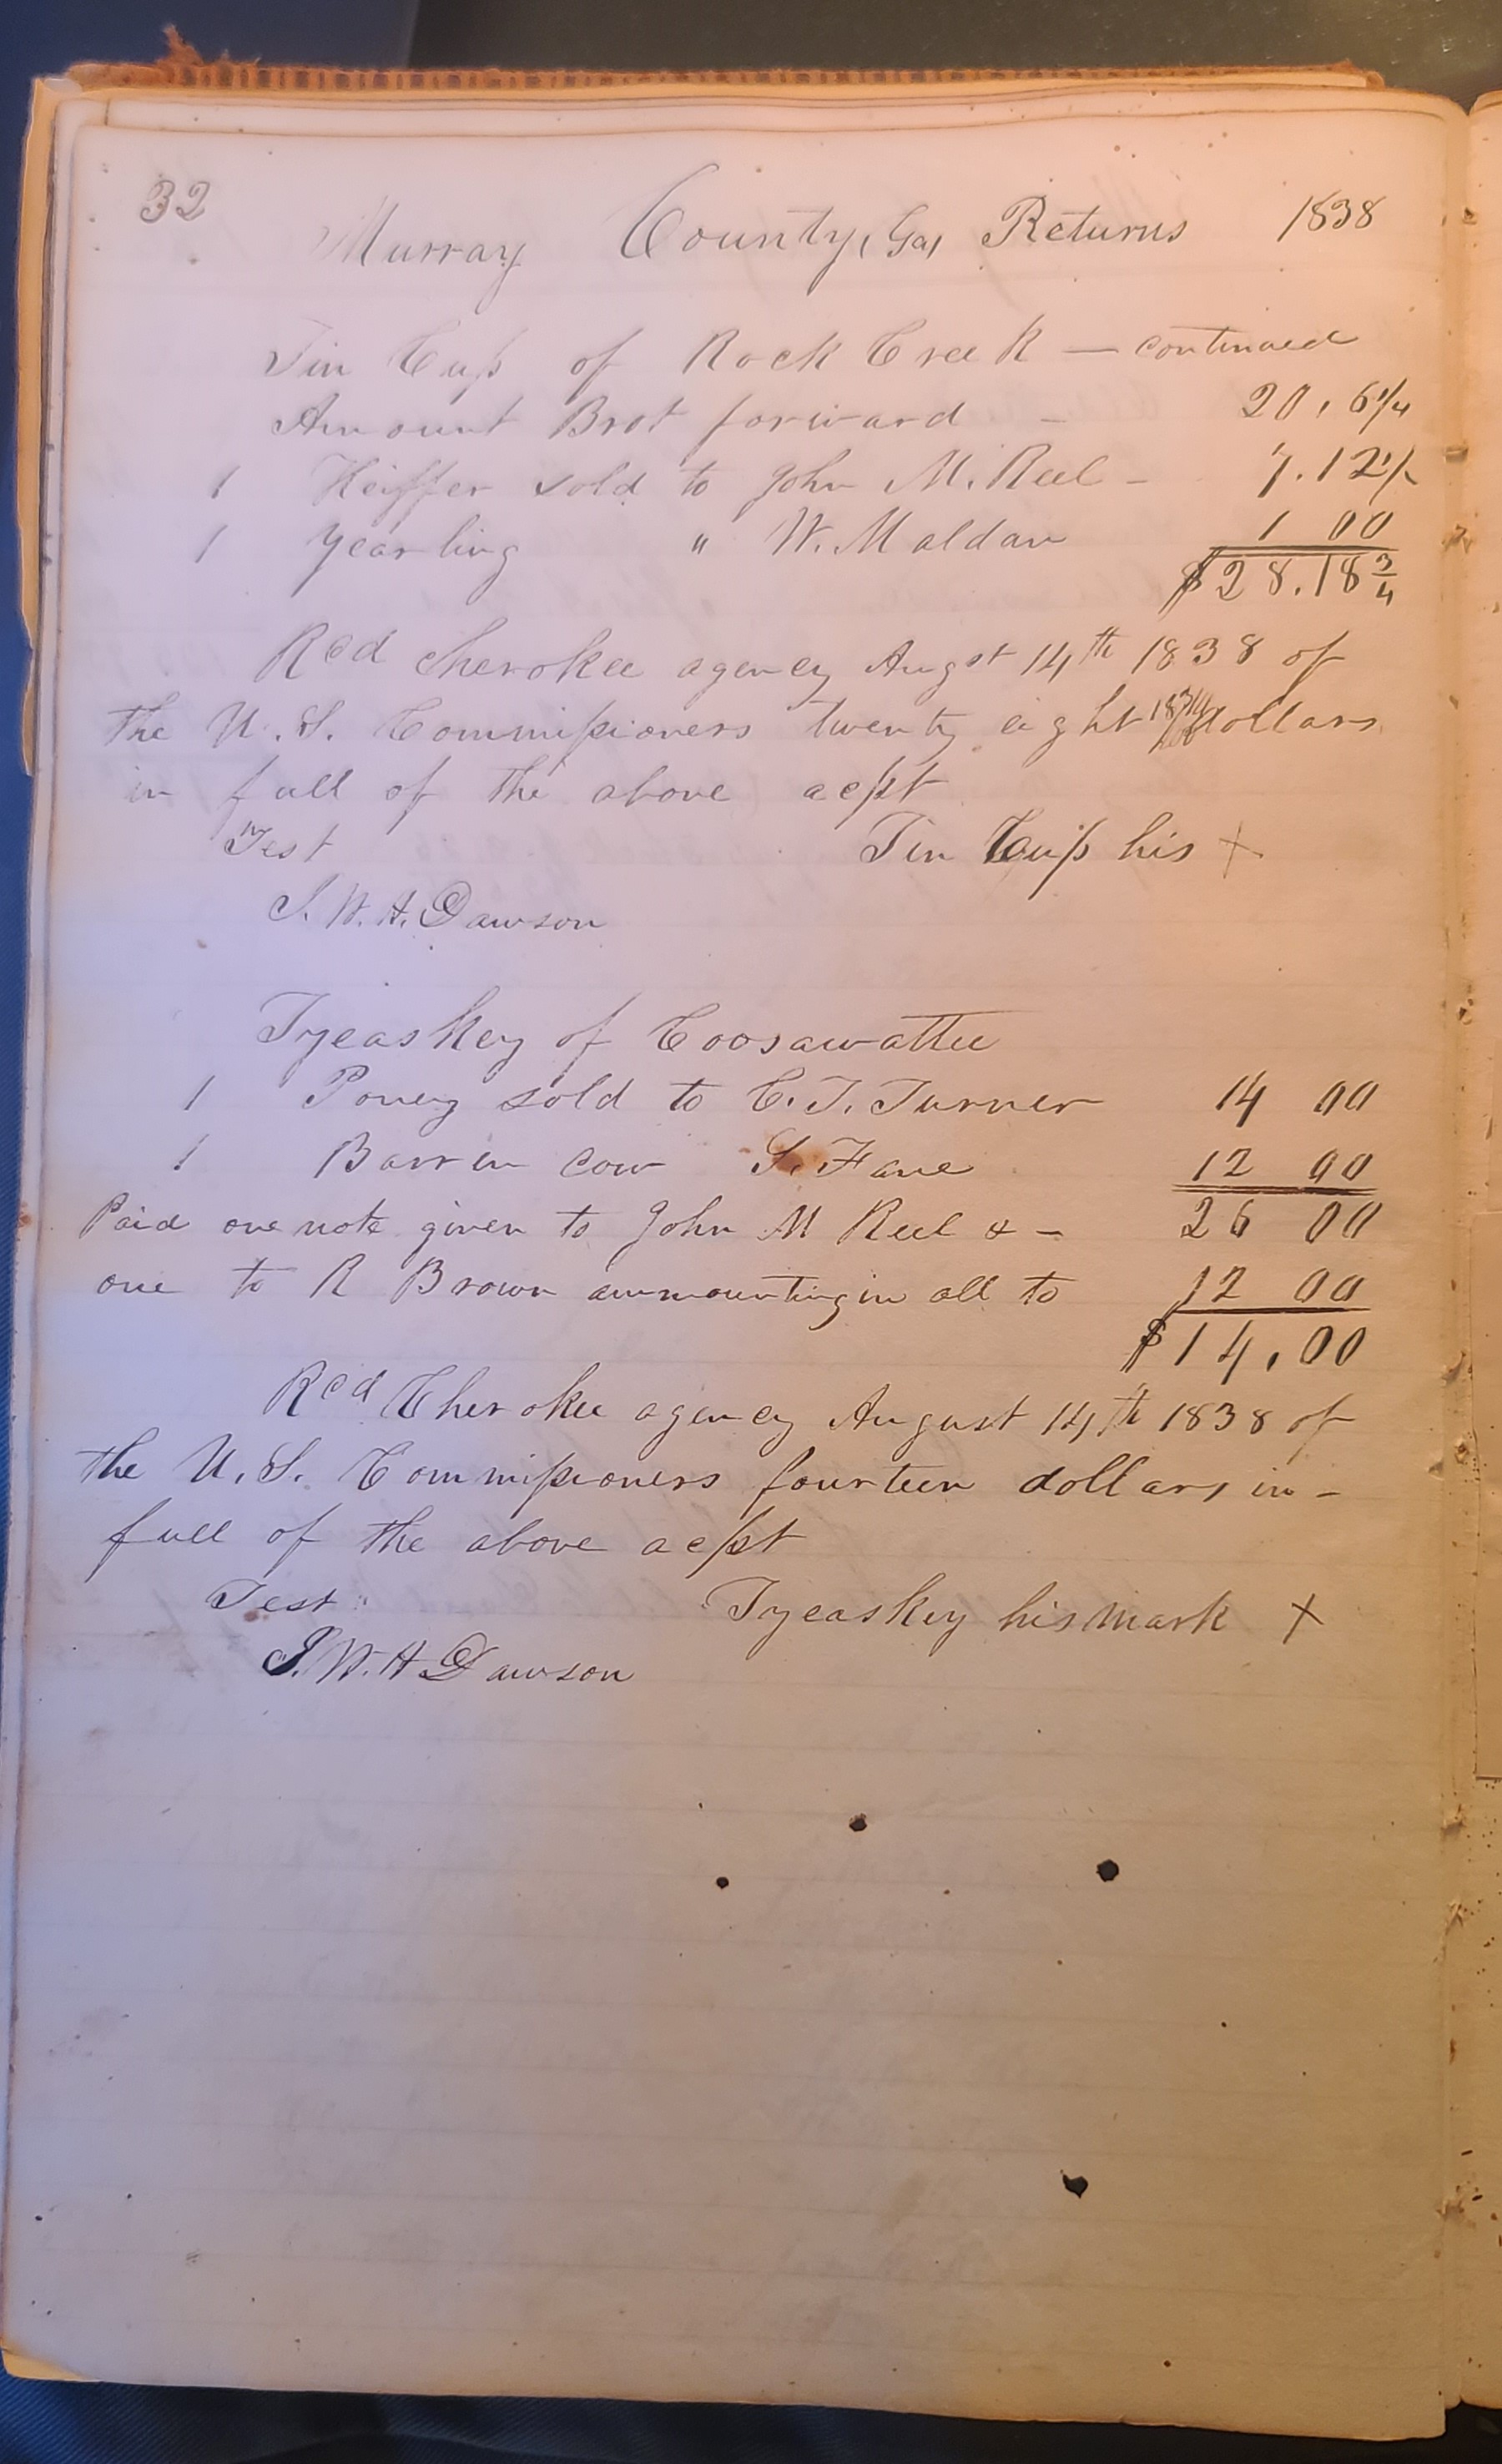 32 Murray County, Ga, Returns 1838
Tin Cup of Rock Creek — continued
Amount Brot forward - 20,6 1/4
1 Heiffer sold to John M. Reel - 7.12 1/2
1 Yearling " W. Maldan 1 00
$28.18 3/4
Recd Cherokee agency Augst 14th 1838 of
the U.S. Commissioners twenty eight 18 3/4/100 dollars
in full of the above acpt
Test Tin Cup his X
J. W. H. Dawson
Tyeaskey of Coosawattee
1 Poney sold to C. T. Turner 14 00
1 Barren Cow S. Fane 12 00
Paid one note given to John M Reel & - 26 00
one to R Brown ammounting in all to 12 00
$14,00
Recd Cherokee agency August 14th 1838 of
the U.S. Commissioners fourteen dollars in -
full of the above acpt
Test" Tyeaskey his mark X
J. W. H Dawson